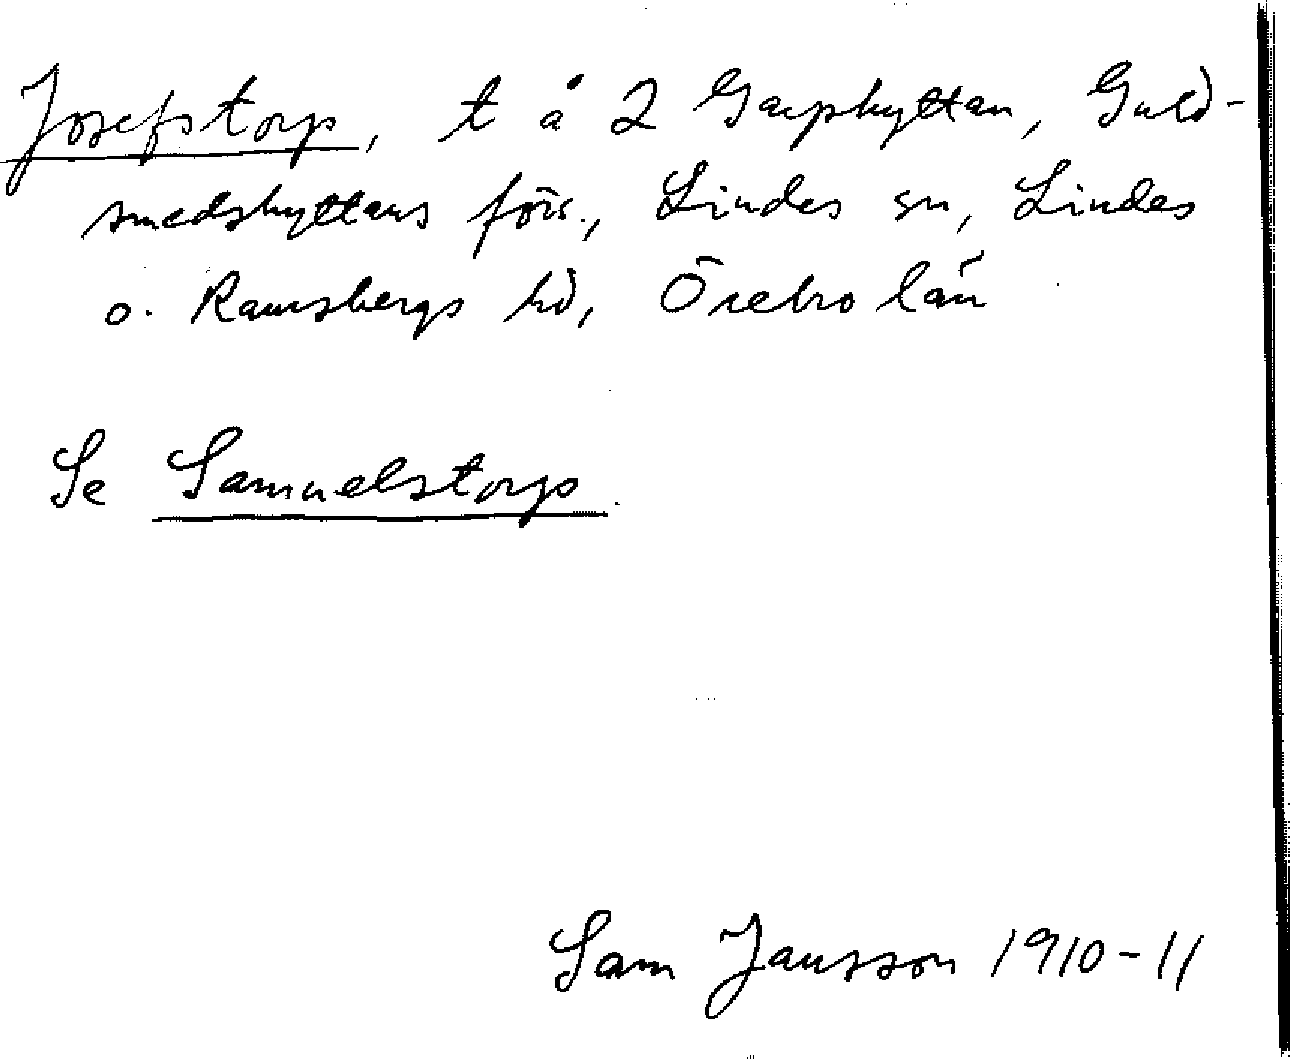 Josefstorp, t å 2 Garphyttan, Guld-
smedshyttans förs., Lindes sn, Lindes
o. Ramsbergs hd, Örebro län
Se Samuelstorp.
Sam Jansson 1910-11